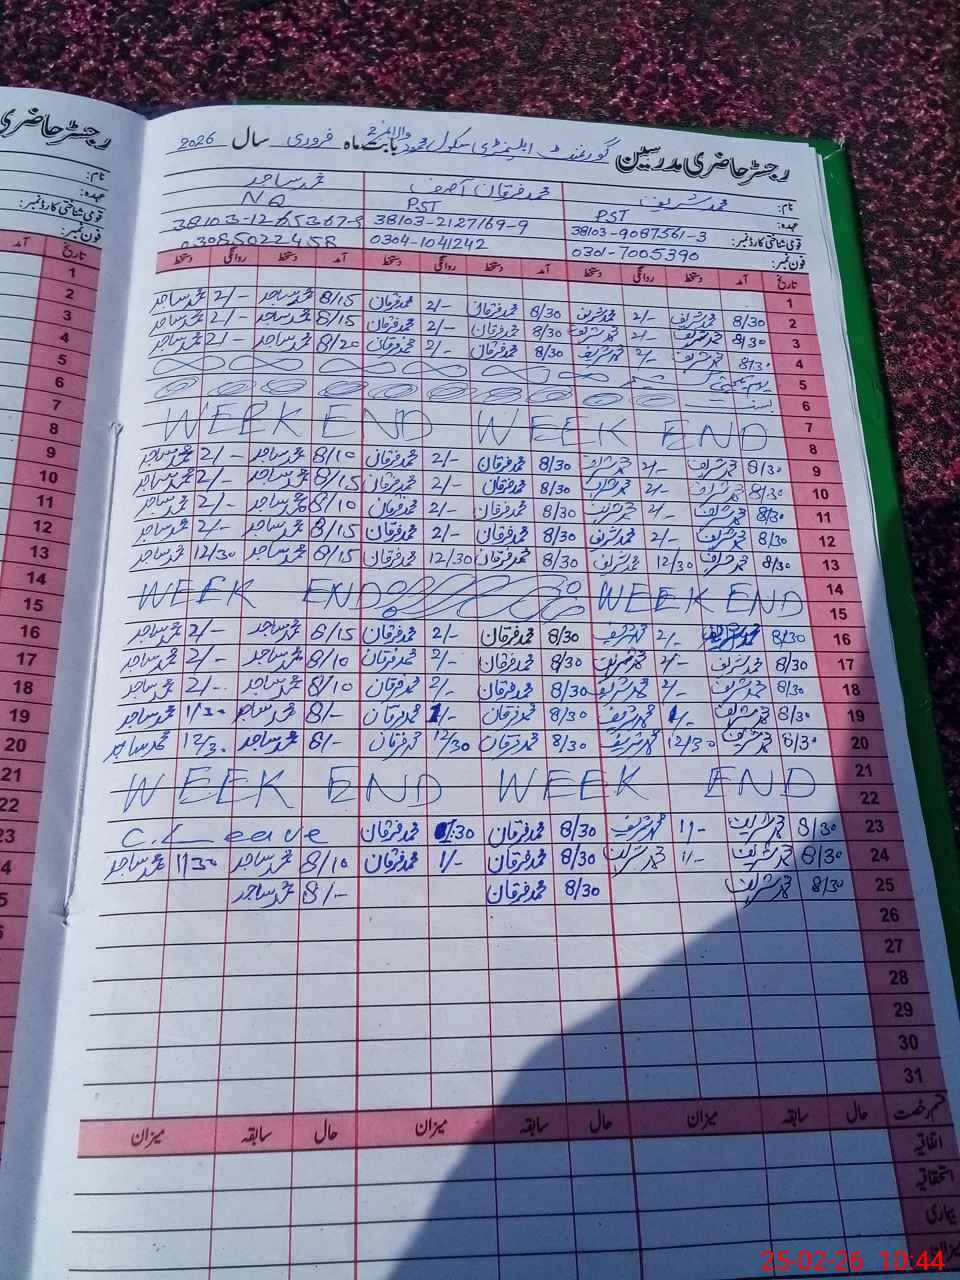 رجسٹر حاضری مدرسین گورنمنٹ ایلیمنٹری سکول بابت ماہ فروری سال 2026
نام: محمد شریف محمد فرقان آصف محمد ساجد
عہدہ: PST PST NQ
قومی شناختی کارڈ نمبر: 38103-9087561-3 38103-2127169-9
فون نمبر: 0301-7005390 0304-1041242 03085022458
تاریخ آمد دستخط روانگی دستخط آمد دستخط روانگی دستخط آمد دستخط روانگی دستخط
1
2 8/30 محمد شریف 2/- محمد شریف 8/30 محمد فرقان 2/- محمد فرقان 8/15 محمد ساجد 2/- محمد ساجد
3 8/30 محمد شریف 2/- محمد شریف 8/30 محمد فرقان 2/- محمد فرقان 8/15 محمد ساجد 2/- محمد ساجد
4 8/30 محمد شریف 2/- محمد شریف 8/30 محمد فرقان 2/- محمد فرقان 8/20 محمد ساجد 2/- محمد ساجد
5
6 بسنت
7
8
WEEK END WEEK END
9 8/30 محمد شریف 2/- محمد شریف 8/30 محمد فرقان 2/- محمد فرقان 8/10 محمد ساجد 2/- محمد ساجد
10 8/30 محمد شریف 2/- محمد شریف 8/30 محمد فرقان 2/- محمد فرقان 8/15 محمد ساجد 2/- محمد ساجد
11 8/30 محمد شریف 2/- محمد شریف 8/30 محمد فرقان 2/- محمد فرقان 8/10 محمد ساجد 2/- محمد ساجد
12 8/30 محمد شریف 2/- محمد شریف 8/30 محمد فرقان 2/- محمد فرقان 8/15 محمد ساجد 2/- محمد ساجد
13 8/30 محمد شریف 12/30 محمد شریف 8/30 محمد فرقان 12/30 محمد فرقان 8/15 محمد ساجد 12/30 محمد ساجد
14
15
WEEK END WEEK END
16 8/30 محمد شریف 2/- محمد شریف 8/30 محمد فرقان 2/- محمد فرقان 8/15 محمد ساجد 2/- محمد ساجد
17 8/30 محمد شریف 2/- محمد شریف 8/30 محمد فرقان 2/- محمد فرقان 8/10 محمد ساجد 2/- محمد ساجد
18 8/30 محمد شریف 2/- محمد شریف 8/30 محمد فرقان 2/- محمد فرقان 8/10 محمد ساجد 2/- محمد ساجد
19 8/30 محمد شریف 1/- محمد شریف 8/30 محمد فرقان 1/- محمد فرقان 8/- محمد ساجد 1/30 محمد ساجد
20 8/30 محمد شریف 12/30 محمد شریف 8/30 محمد فرقان 12/30 محمد فرقان 8/- محمد ساجد 12/30 محمد ساجد
21
22
WEEK END WEEK END
23 8/30 محمد شریف 1/- محمد شریف 8/30 محمد فرقان محمد فرقان C.Leave
24 8/30 محمد شریف 1/- محمد شریف 8/30 محمد فرقان 1/- محمد فرقان 8/10 محمد ساجد 1/30 محمد ساجد
25 8/30 محمد شریف 8/30 محمد فرقان 8/- محمد ساجد
26
27
28
29
30
31
قسم رخصت حال سابقہ میزان حال سابقہ میزان حال سابقہ میزان
اتفاقیہ
استحقاقیہ
بیماری
میزان
25-02-26 10:44